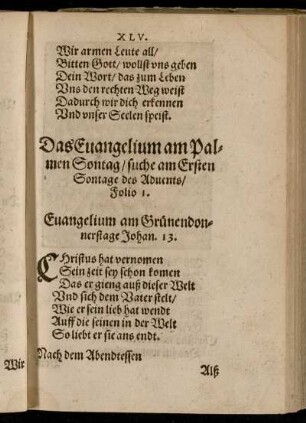 XLV.
Wir armen Leute all/
Bitten Gott/ wollst vns geben
Dein Wort/ das zum Leben
Vns den rechten Weg weist
Dadurch wir dich erkennen
Vnd vnser Seelen speist.
Das Euangelium am Pal-
men Sontag/ suche am Ersten
Sontage des Aduents/
Folio 1.
Euangelium am Grünendon-
nerstage Johan. 13.
CHristus hat vernomen
Sein zeit sey schon komen
Das er gieng auß dieser Welt
Vnd sich dem Vater stelt/
Wie er sein lieb hat wendt
Auff die seinen in der Welt
So liebt er sie ans endt.
Nach dem Abendtessen
Wir
Alß